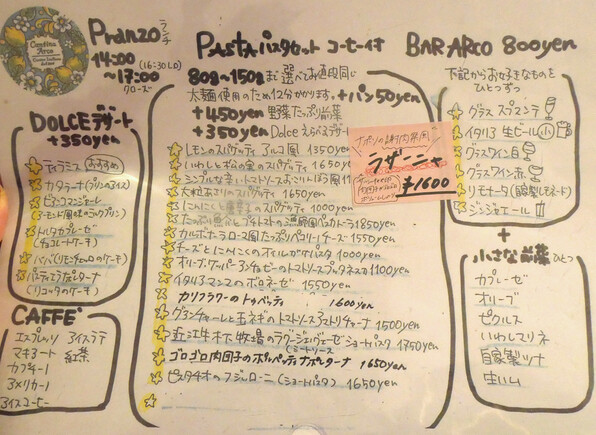 Cantina Arco
Pranzo ランチ
14:00 (16:30LO)
~17:00
クローズ
DOLCE デザート
+350yen
ティラミス おすすめ
カタラーナ(プリンのアイス)
ビアンコマンジャーレ
(アーモンド風味のミルクプリン)
トルタカプレーゼ
(チョコレートケーキ)
ババ(リモンチェッロのケーキ)
パスティエラナポレターナ
(リコッタのケーキ)
CAFFE'
エスプレッソ アイスラテ
マキアート 紅茶
カプチーノ
アメリカーノ
アイスコーヒー
PASTA パスタセット コーヒー付
80g~150gまで選べてお値段同じ
太麺使用のため12分かかります。+パン50yen
+450yen 野菜たっぷり前菜
+350yen Dolce えらべるデザート
レモンのスパゲッティ アルコ風 1350yen
いわしと松の実のスパゲッティ 1650yen
シンプルな辛いトマトソース
大粒あさりのスパゲティ 1650yen
にんにくと唐辛子のスパゲッティ 1000yen
1850yen
カルボナーラ ローマ風 たっぷりペコリーノチーズ 1550yen
チーズとにんにくのオイル 1100yen
オリーブ・ケーパー・アンチョビーのトマトソース プッタネスカ 1100yen
イタリアマンマのボロネーゼ 1550yen
カリフラワーのトゥベッティ 1600yen
グアンチャーレと玉ネギのトマトソース アマトリチャーナ 1500yen
近江牛 木下牧場のラグージェノヴェーゼ ショートパスタ 1750yen
(ミートソース)
ゴロゴロ肉団子のポルペッティナポレターナ 1650yen
ピスタチオのフジッローニ (ショートパスタ) 1650yen
ナポリの謝肉祭風
ラザーニャ
¥1600
BAR ARCO 800yen
下記からお好きなものを
ひとつずつ
グラス スプマンテ
イタリア 生ビール 小
グラスワイン白
グラスワイン赤
リモナータ(自製レモネード)
ジンジャエール
+
小さな前菜 ひとつ
カプレーゼ
オリーブ
ピクルス
いわしマリネ
自家製ツナ
生ハム